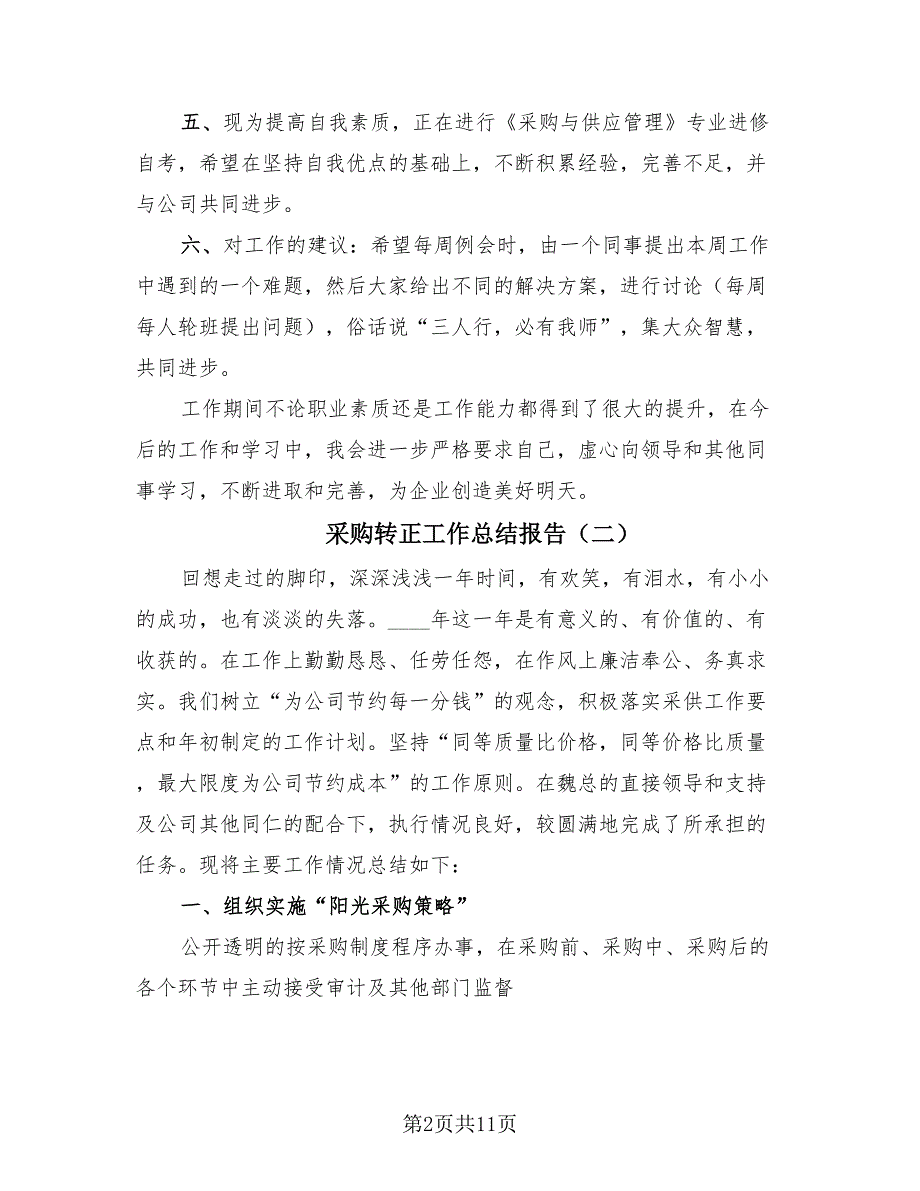 五、现为提高自我素质，正在进行《采购与供应管理》专业进修
自考，希望在坚持自我优点的基础上，不断积累经验，完善不足，并
与公司共同进步。
六、对工作的建议：希望每周例会时，由一个同事提出本周工作
中遇到的一个难题，然后大家给出不同的解决方案，进行讨论（每周
每人轮班提出问题），俗话说“三人行，必有我师”，集大众智慧，
共同进步。
工作期间不论职业素质还是工作能力都得到了很大的提升，在今
后的工作和学习中，我会进一步严格要求自己，虚心向领导和其他同
事学习，不断进取和完善，为企业创造美好明天。
采购转正工作总结报告（二）
回想走过的脚印，深深浅浅一年时间，有欢笑，有泪水，有小小
的成功，也有淡淡的失落。____年这一年是有意义的、有价值的、有
收获的。在工作上勤勤恳恳、任劳任怨，在作风上廉洁奉公、务真求
实。我们树立“为公司节约每一分钱”的观念，积极落实采供工作要
点和年初制定的工作计划。坚持“同等质量比价格，同等价格比质量
，最大限度为公司节约成本”的工作原则。在魏总的直接领导和支持
及公司其他同仁的配合下，执行情况良好，较圆满地完成了所承担的
任务。现将主要工作情况总结如下：
一、组织实施“阳光采购策略”
公开透明的按采购制度程序办事，在采购前、采购中、采购后的
各个环节中主动接受审计及其他部门监督
第2页共11页